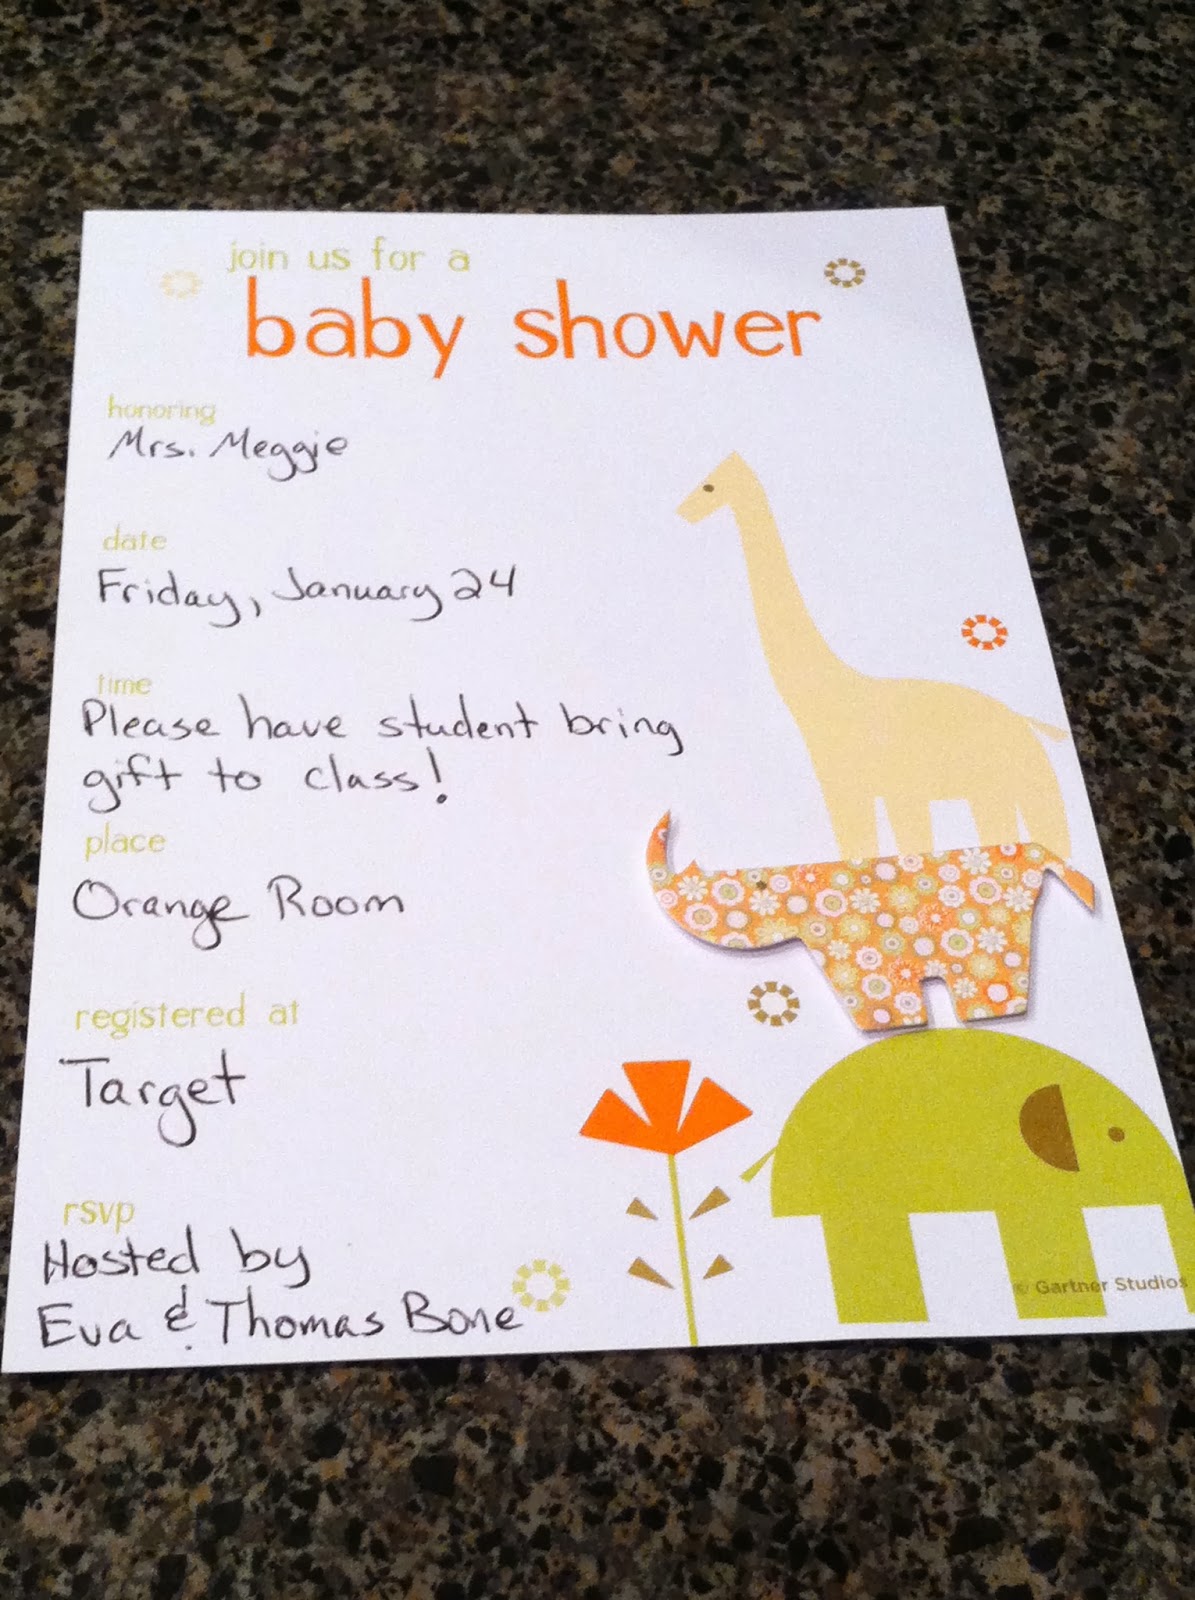 join us for a
baby shower
honoring
Mrs. Meggie
date
Friday, January 24
time
Please have student bring
gift to class!
place
Orange Room
registered at
Target
rsvp
Hosted by
Eva & Thomas Bone
© Gartner Studios